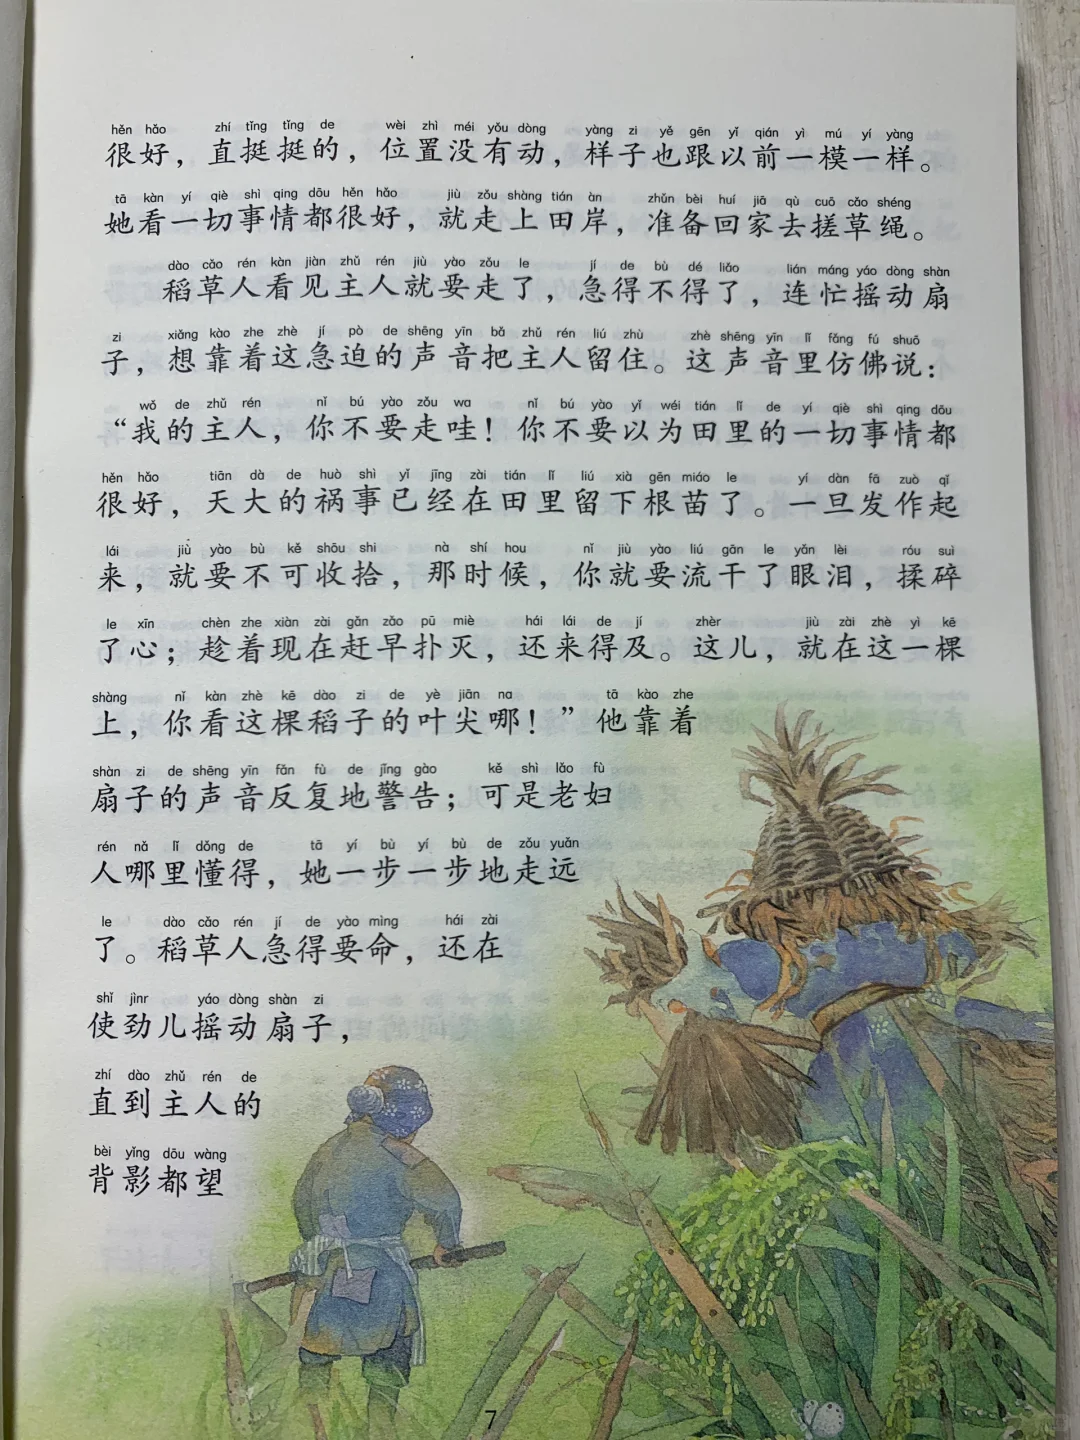 hěn hǎo zhí tǐng tǐng de wèi zhì méi yǒu dòng yàng zi yě gēn yǐ qián yì mú yí yàng
很好，直挺挺的，位置没有动，样子也跟以前一模一样。
tā kàn yí qiè shì qing dōu hěn hǎo jiù zǒu shàng tián àn zhǔn bèi huí jiā qù cuō cǎo shéng
她看一切事情都很好，就走上田岸，准备回家去搓草绳。
dào cǎo rén kàn jiàn zhǔ rén jiù yào zǒu le jí de bù dé liǎo lián máng yáo dòng shàn
稻草人看见主人就要走了，急得不得了，连忙摇动扇
zi xiǎng kào zhe zhè jí pò de shēng yīn bǎ zhǔ rén liú zhù zhè shēng yīn lǐ fǎng fú shuō
子，想靠着这急迫的声音把主人留住。这声音里仿佛说：
wǒ de zhǔ rén nǐ bú yào zǒu wa nǐ bú yào yǐ wéi tián lǐ de yí qiè shì qing dōu
“我的主人，你不要走哇！你不要以为田里的一切事情都
hěn hǎo tiān dà de huò shì yǐ jīng zài tián lǐ liú xià gēn miáo le yí dàn fā zuò qǐ
很好，天大的祸事已经在田里留下根苗了。一旦发作起
lái jiù yào bù kě shōu shi nà shí hou nǐ jiù yào liú gān le yǎn lèi róu suì
来，就要不可收拾，那时候，你就要流干了眼泪，揉碎
le xīn chèn zhe xiàn zài gǎn zǎo pū miè hái lái de jí zhèr jiù zài zhè yì kē
了心；趁着现在赶早扑灭，还来得及。这儿，就在这一棵
shàng nǐ kàn zhè kē dào zi de yè jiān na tā kào zhe
上，你看这棵稻子的叶尖哪！”他靠着
shàn zi de shēng yīn fǎn fù de jǐng gào kě shì lǎo fù
扇子的声音反复地警告；可是老妇
rén nǎ lǐ dǒng de tā yí bù yí bù de zǒu yuǎn
人哪里懂得，她一步一步地走远
le dào cǎo rén jí de yào mìng hái zài
了。稻草人急得要命，还在
shǐ jìnr yáo dòng shàn zi
使劲儿摇动扇子，
zhí dào zhǔ rén de
直到主人的
bèi yǐng dōu wàng
背影都望
7